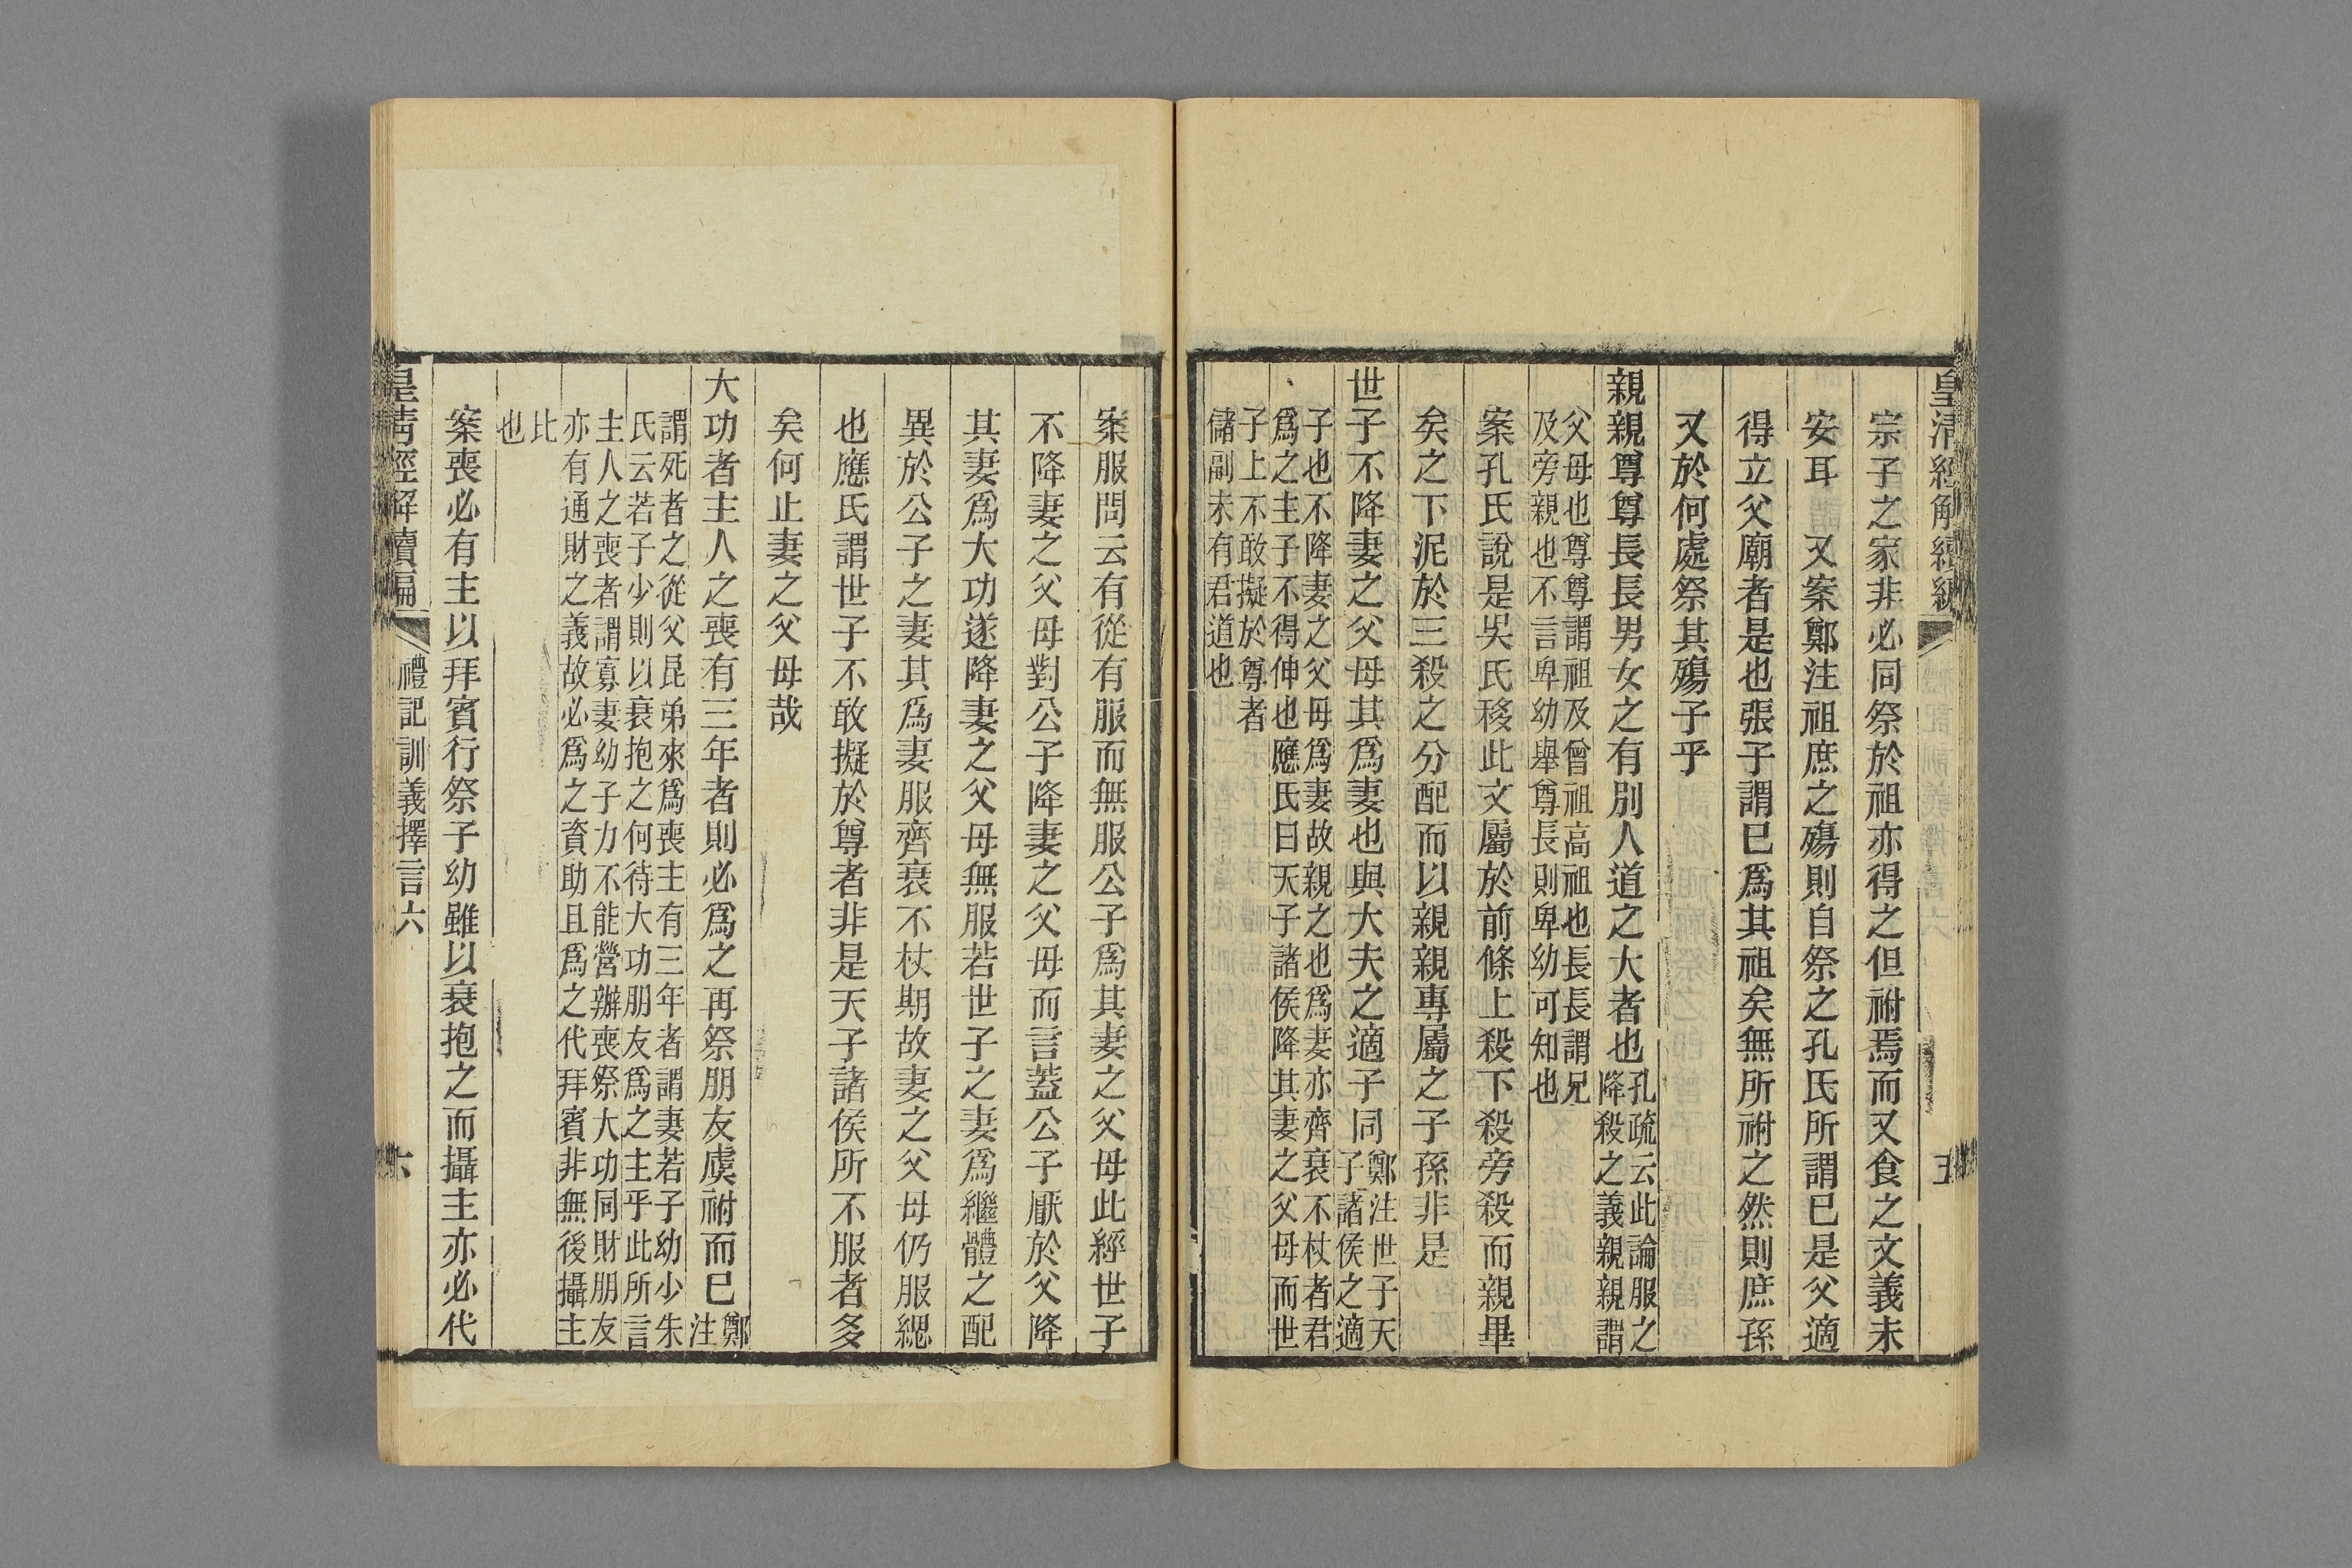 皇清經解續編
禮記訓義擇言六
五
宗子之家非必同祭於祖亦得之但祔焉而又食之文義未
安耳　又案鄭注祖庶之殤則自祭之孔氏所謂已是父適
得立父廟者是也張子謂已爲其祖矣無所祔之然則庶孫
又於何處祭其殤子乎
親親尊尊長長男女之有別人道之大者也
孔疏云此論服之
降殺之義親親謂
父母也尊尊謂祖及曾祖高祖也長長謂兄
及旁親也不言卑幼舉尊長則卑幼可知也
案孔氏說是吳氏移此文屬於前條上殺下殺旁殺而親畢
矣之下泥於三殺之分配而以親親專屬之子孫非是
世子不降妻之父母其爲妻也與大夫之適子同
鄭注世子天
子諸侯之適
子也不降妻之父母爲妻故親之也爲妻亦齊衰不杖者君
爲之主子不得伸也應氏曰天子諸侯降其妻之父母而世
子上不敢擬於尊者
儲副未有君道也
案服問云有從有服而無服公子爲其妻之父母此經世子
不降妻之父母對公子降妻之父母而言蓋公子厭於父降
其妻爲大功遂降妻之父母無服若世子之妻爲繼體之配
異於公子之妻其爲妻服齊衰不杖期故妻之父母仍服緦
也應氏謂世子不敢擬於尊者非是天子諸侯所不服者多
矣何止妻之父母哉
大功者主人之喪有三年者則必爲之再祭朋友虞祔而已
鄭
注
謂死者之從父昆弟來爲喪主有三年者謂妻若子幼少朱
氏云若子少則以衰抱之何待大功朋友爲之主乎此所言
主人之喪者謂寡妻幼子力不能營辦喪祭大功同財朋友
亦有通財之義故必爲之資助且爲之代拜賓非無後攝主
比
也
案喪必有主以拜賓行祭子幼雖以衰抱之而攝主亦必代
皇清經解續編
禮記訓義擇言六
六